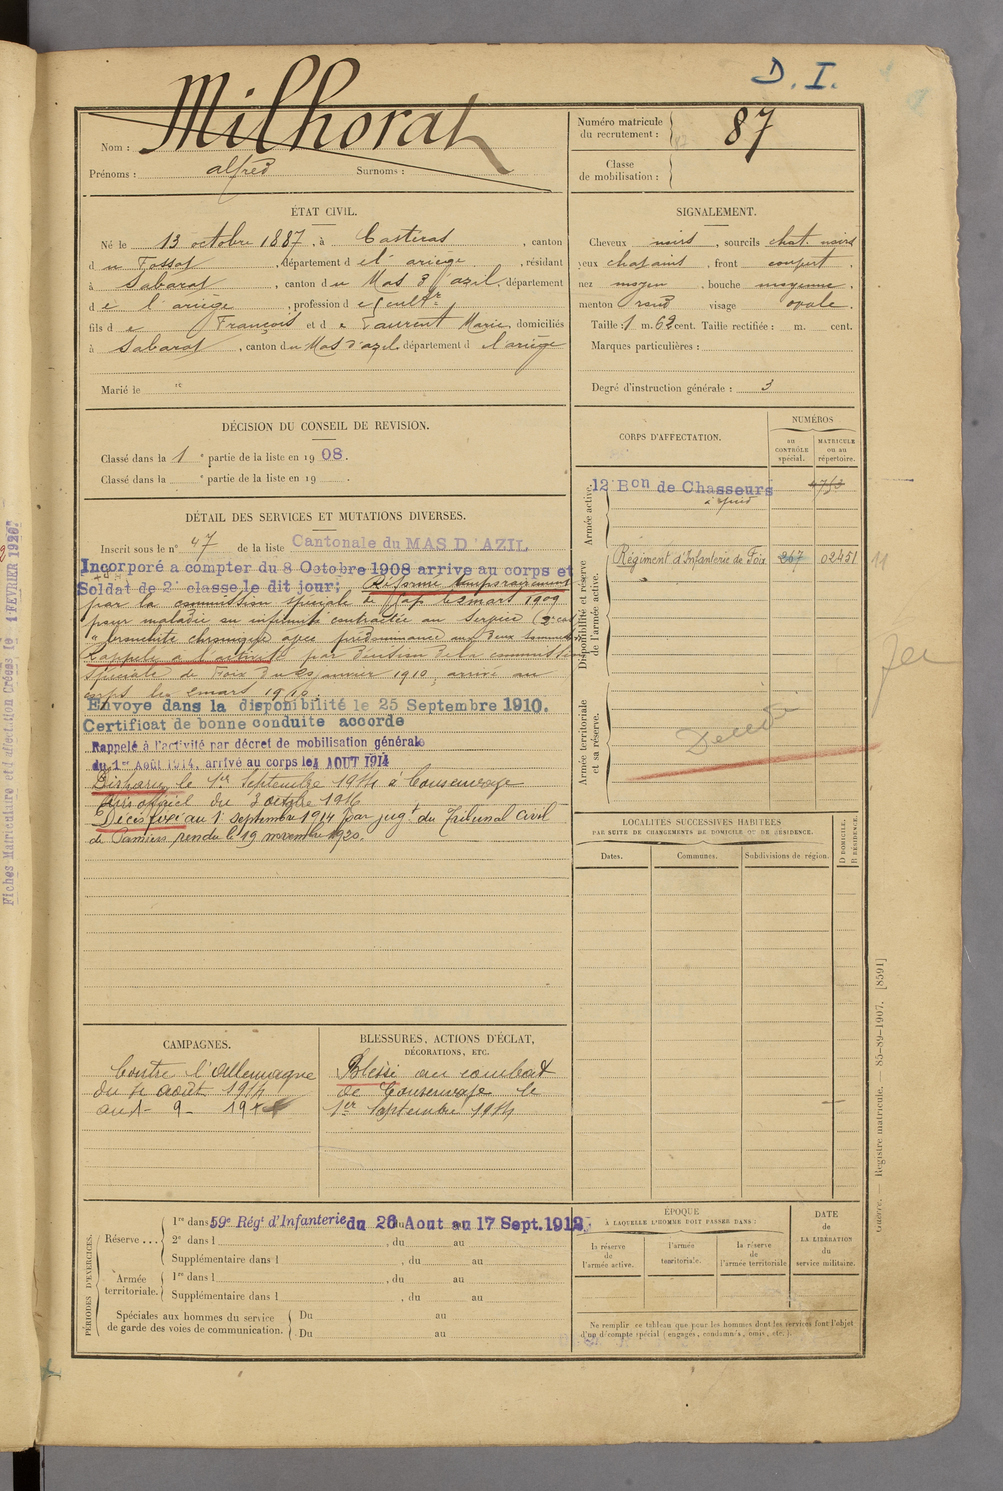 D. I.
Nom : Milhorat
Prénoms : alfred Surnoms :
Numéro matricule
du recrutement : 87
Classe
de mobilisation :
ÉTAT CIVIL.
Né le 13 octobre 1887, à Casteras, canton
du Fossat, département de l'ariège, résidant
à Sabarat, canton du Mas d'azil, département
de l'ariège, profession de cultr
fils de François et de Laurent Marie, domiciliés
à Sabarat, canton du Mas d'azil, département d l'ariège
Marié le
SIGNALEMENT.
Cheveux noirs, sourcils chat. noirs
yeux chatains, front
nez moyen, bouche moyenne.
menton rond visage ovale.
Taille : 1 m. 62 cent. Taille rectifiée : m. cent.
Marques particulières :
Degré d'instruction générale : 3
DÉCISION DU CONSEIL DE REVISION.
Classé dans la 1e partie de la liste en 1908.
Classé dans la e partie de la liste en 19
CORPS D'AFFECTATION.
NUMÉROS
au
CONTRÔLE
spécial.
MATRICULE
ou au
répertoire.
Armée active.
12 Bon de Chasseurs
à pied
Disponibilité et réserve
de l'armée active.
Régiment d'Infanterie de Foix 267 02451
Armée territoriale
et sa réserve.
DÉTAIL DES SERVICES ET MUTATIONS DIVERSES.
Inscrit sous le n° 47 de la liste Cantonale du MAS D'AZIL
Incorporé a compter du 8 Octobre 1908 arrive au corps et
Soldat de 2e classe le dit jour; Réformé temporairement
par la commission spéciale de Gap le 2 mars 1909
pour maladie ou infirmité contractée au service (2e cat
" bronchite chronique avec prédominance aux deux sommets
Rappelé à l'activité par décision de la commission
spéciale de Foix du 20 janvier 1910, arrivé au
corps le 2 mars 1910.
Envoye dans la disponibilité le 25 Septembre 1910.
Certificat de bonne conduite accorde
Rappelé à l'activité par décret de mobilisation générale
du 1er Août 1914, arrivé au corps le 4 AOUT 1914
Disparu le 1er Septembre 1914 à Consenvoye
avis officiel du 3 octobre 1916
Décès fixé au 1er septembre 1914 par jugt du Tribunal civil
de Pamiers rendu le 19 novembre 1920.
LOCALITÉS SUCCESSIVES HABITÉES
PAR SUITE DE CHANGEMENTS DE DOMICILE OU DE RÉSIDENCE.
Dates. Communes. Subdivisions de région.
D DOMICILE.
R RÉSIDENCE.
CAMPAGNES.
Contre l'Allemagne
du 4 août 1914
au 1- 9- 1914
BLESSURES, ACTIONS D'ÉCLAT,
DÉCORATIONS, ETC.
Blessé au combat
de Consenvoye le
1er Septembre 1914
PÉRIODES D'EXERCICES.
Réserve . . .
1re dans 59e Régt d'Infanterie du 26 Aout au 17 Sept. 1912
2e dans l , du au
Supplémentaire dans l , du au
Armée
territoriale.
1re dans l , du au
Supplémentaire dans l , du au
Spéciales aux hommes du service
de garde des voies de communication.
Du au
Du au
ÉPOQUE
À LAQUELLE L'HOMME DOIT PASSER DANS :
la réserve
de
l'armée active.
l'armée
territoriale.
la réserve
de
l'armée territoriale
DATE
de
LA LIBÉRATION
du
service militaire.
Ne remplir ce tableau que pour les hommes dont les services font l'objet
d'un décompte spécial (engagés, condamnés, omis, etc.).
Guerre. — Registre matricule. — 85-89-1907. [8591]
Fiches Matriculaire et d'affectation Créées le 1 FÉVRIER 1926